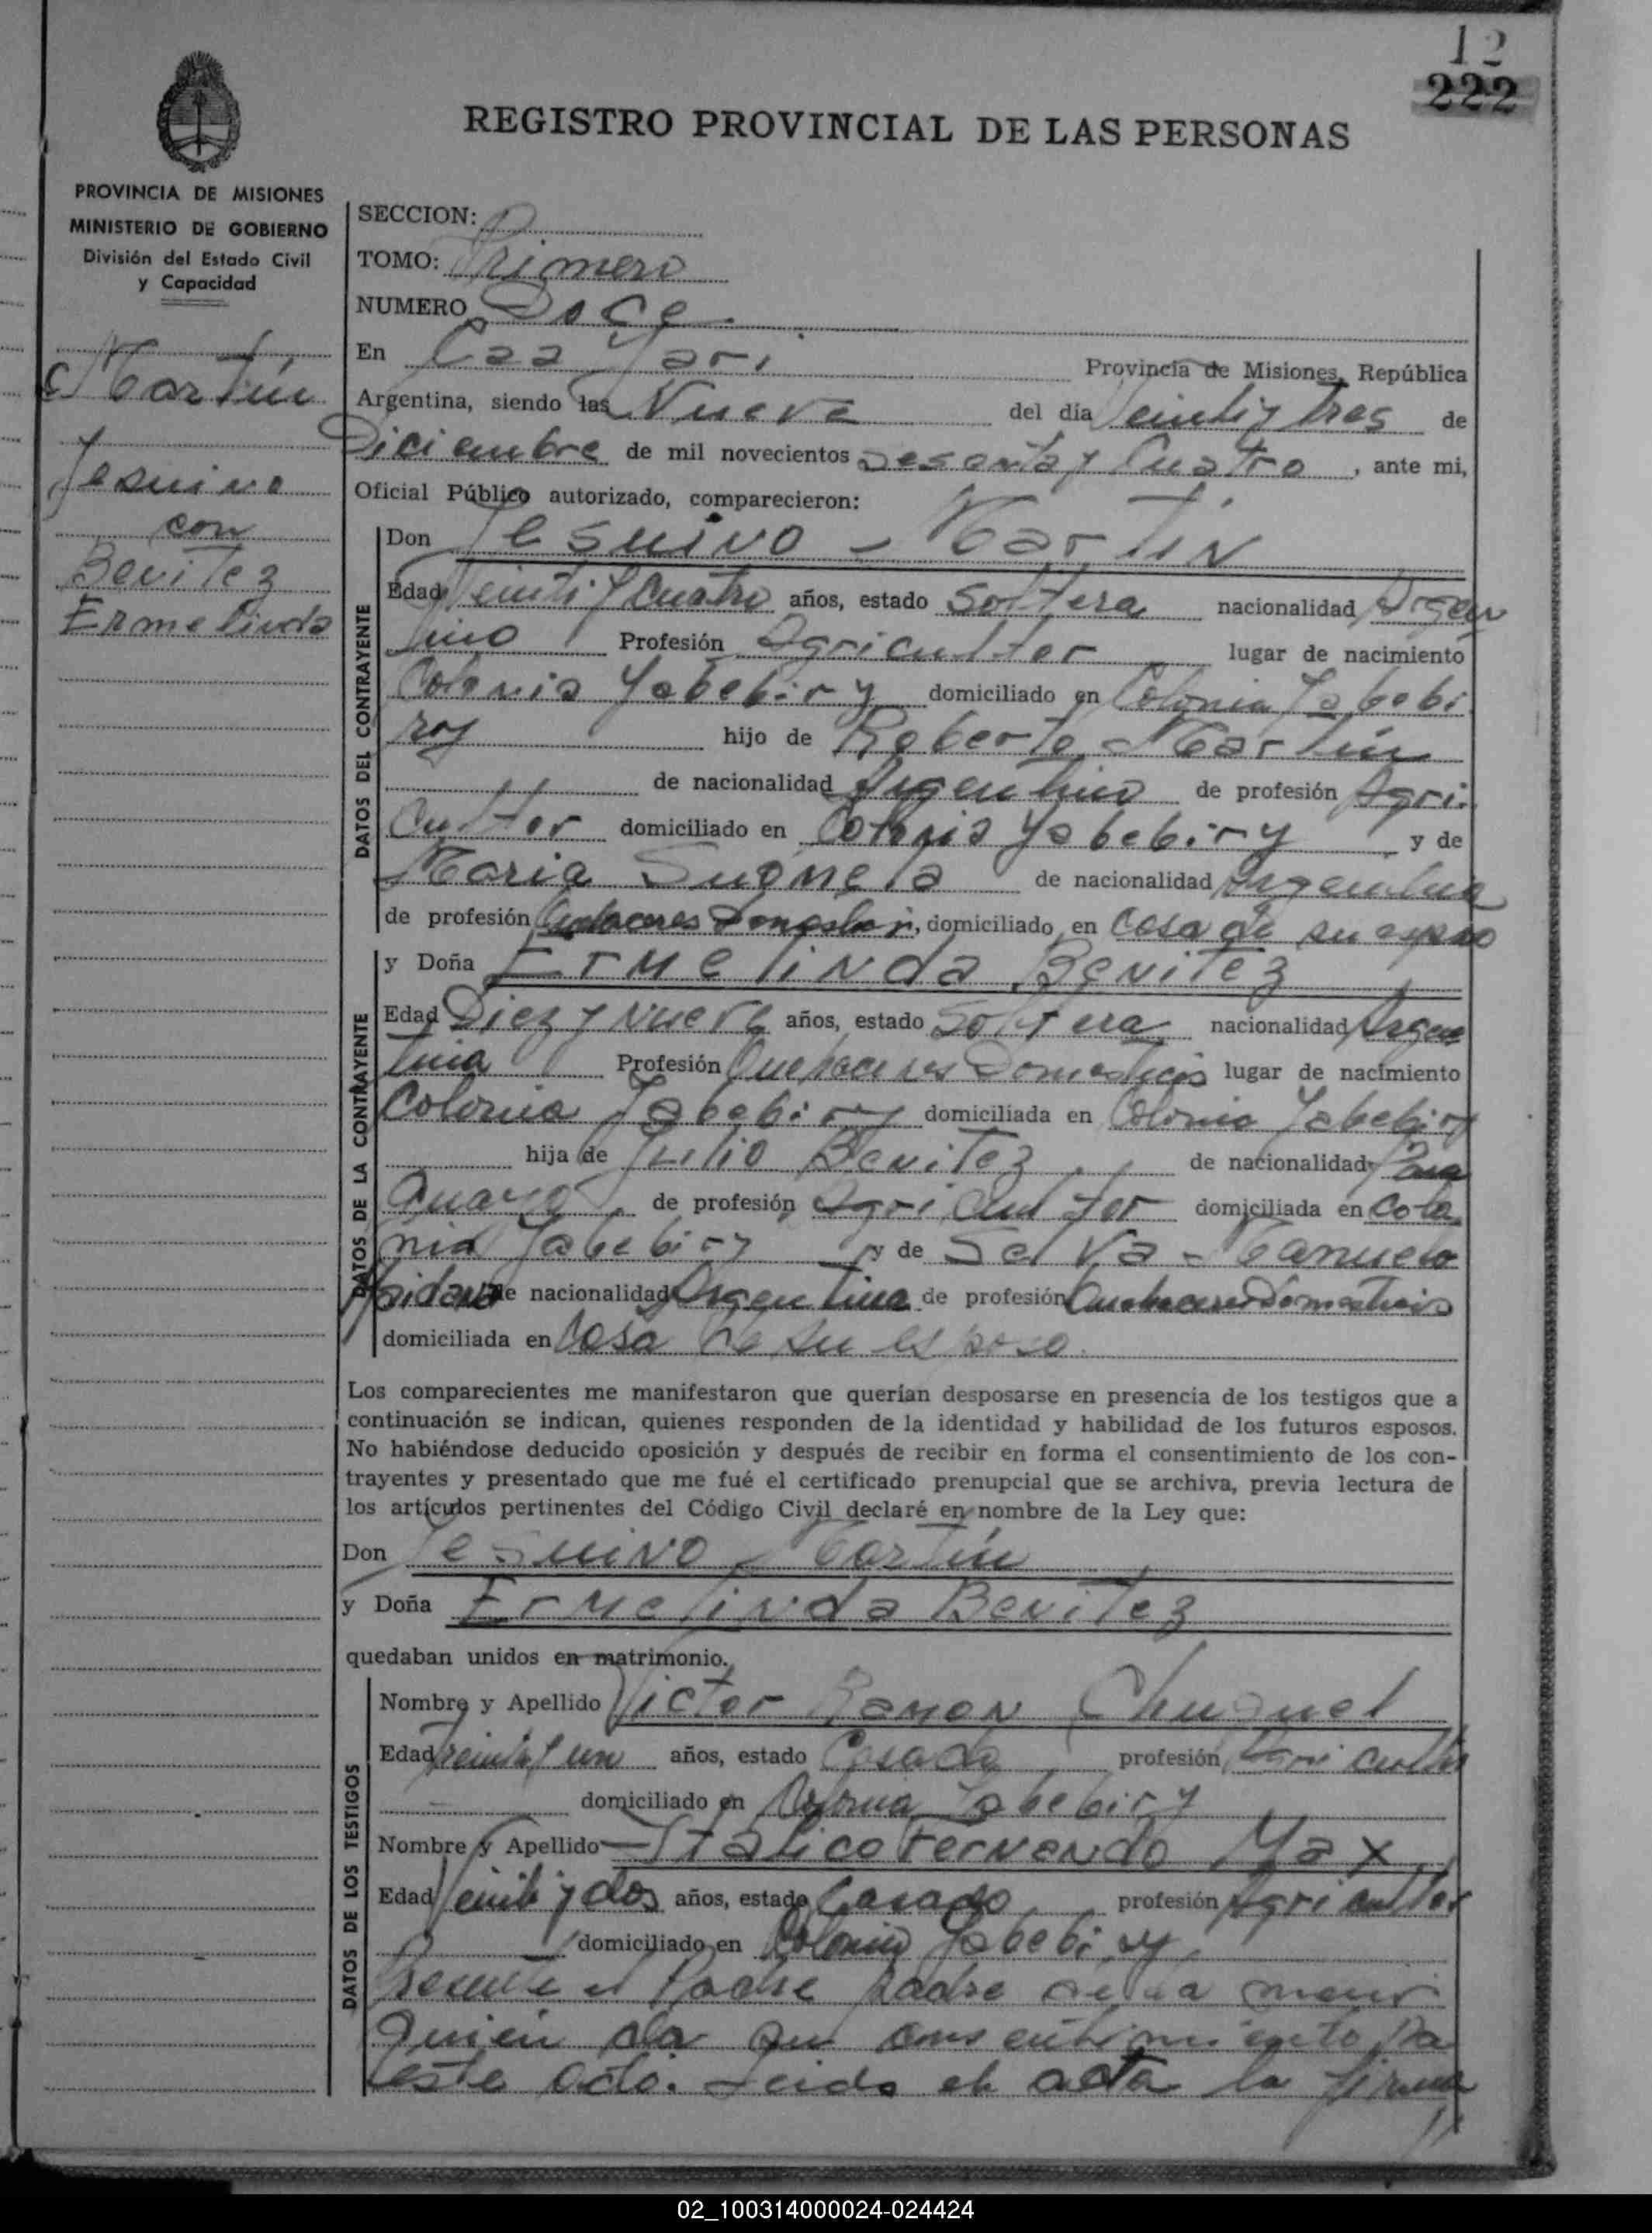 12
222
REGISTRO PROVINCIAL DE LAS PERSONAS
PROVINCIA DE MISIONES
MINISTERIO DE GOBIERNO
División del Estado Civil
y Capacidad
Martín
Jesuino
con
Benitez
Ermelinda
SECCION:
TOMO: Primero
NUMERO Doce
En Caa Yari Provincia de Misiones, República
Argentina, siendo las Nueve del día Veintiy tres de
Diciembre de mil novecientos Sesenta y Cuatro, ante mi,
Oficial Público autorizado, comparecieron:
DATOS DEL CONTRAYENTE
Don Jesuino - Martin
Edad Veinti y Cuatro años, estado Soltera nacionalidad Argen
tino Profesión Agricultor lugar de nacimiento
Colonia Yabebiry domiciliado en Colonia Yabebi
ry hijo de Roberto - Martín
de nacionalidad Argentino de profesión Agri
cultor domiciliado en Colonia Yabebiry y de
Maria de nacionalidad Argentina
de profesión Quehaceres Domesticos, domiciliado en casa de su esposo
DATOS DE LA CONTRAYENTE
y Doña Ermelinda Benitez
Edad Diez y Nueve años, estado Soltera nacionalidad Argen
tina Profesión Quehaceres Domesticos lugar de nacimiento
Colonia Yabebiry domiciliada en Colonia Yabebiry
hija de Julio Benitez de nacionalidad Para
guayo de profesión Agricultor domiciliada en Colo
nia Yabebiry y de Selva - Manuela
Maidana de nacionalidad Argentina de profesión Quehaceres Domesticos
domiciliada en Casa de su esposo.
Los comparecientes me manifestaron que querían desposarse en presencia de los testigos que a
continuación se indican, quienes responden de la identidad y habilidad de los futuros esposos.
No habiéndose deducido oposición y después de recibir en forma el consentimiento de los con-
trayentes y presentado que me fué el certificado prenupcial que se archiva, previa lectura de
los artículos pertinentes del Código Civil declaré en nombre de la Ley que:
Don Jesuino - Martín
y Doña Ermelinda Benitez
quedaban unidos en matrimonio.
DATOS DE LOS TESTIGOS
Nombre y Apellido Victor Ramon
Edad Treinta y un años, estado Casado profesión Agricultor
domiciliado en Colonia Yabebiry
Nombre y Apellido Italico Fernando Max
Edad Veinti y dos años, estado Casado profesión Agricultor
domiciliado en Colonia Yabebiry
Presente el Padre padre de la menor
Quien da su consentimiento Pa
este acto. Leida el acta la firman
02_100314000024-024424